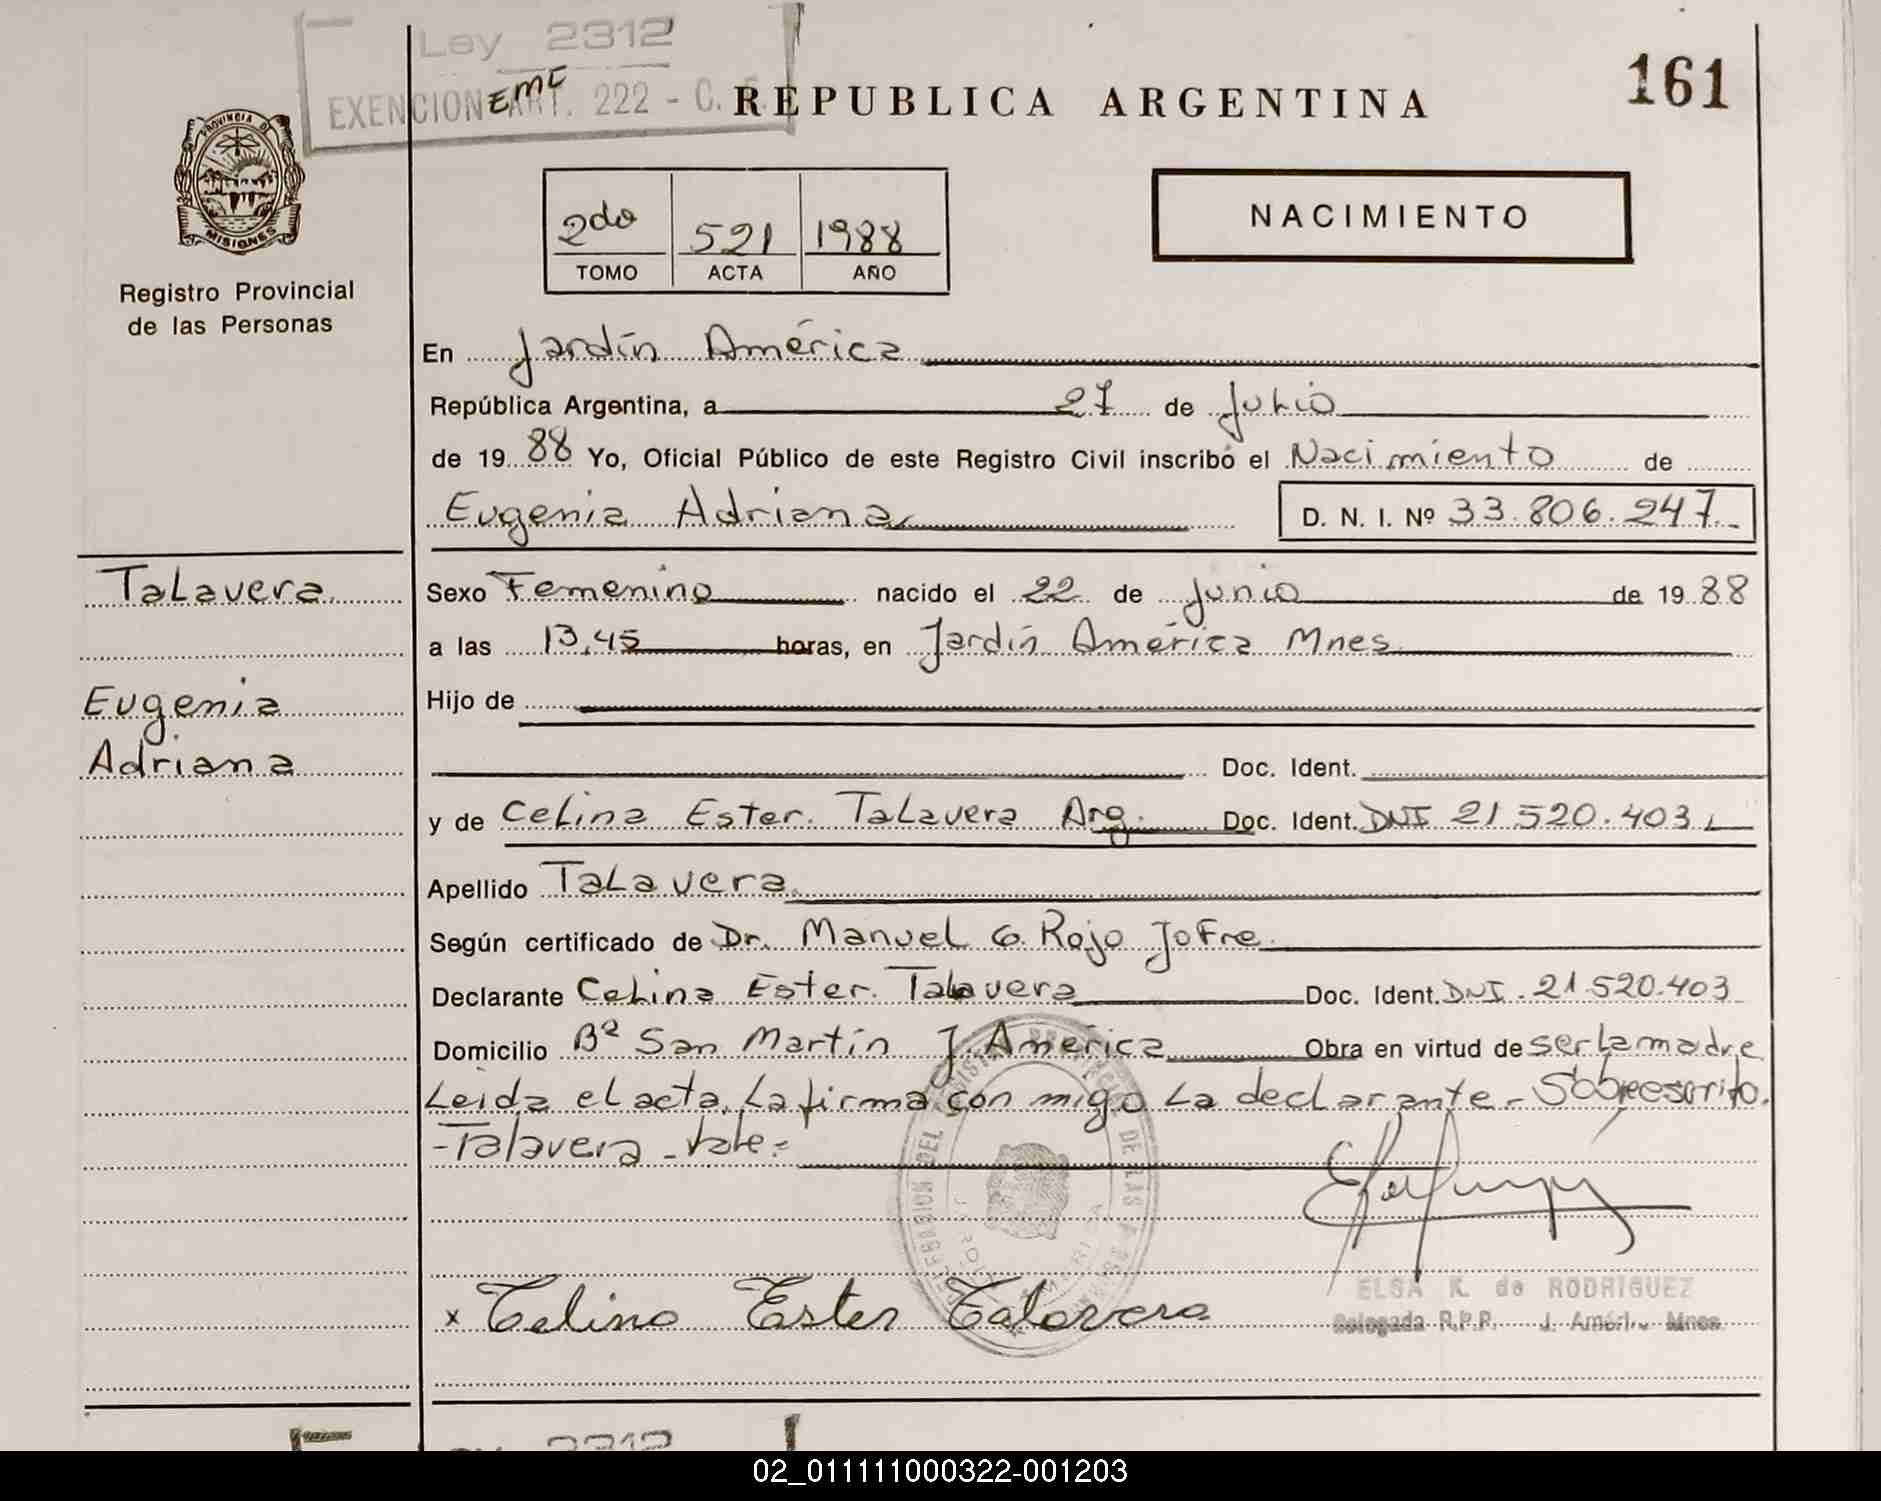 Ley 2312
EXENCION ART. 222 - C. F.
EMC
REPUBLICA ARGENTINA
161
PROVINCIA DE
MISIONES
Registro Provincial
de las Personas
2do 521 1988
TOMO ACTA AÑO
NACIMIENTO
En Jardín América
República Argentina, a 27 de Julio
de 19 88 Yo, Oficial Público de este Registro Civil inscribo el Nacimiento de
Eugenia Adriana D. N. I. Nº 33.806.247.-
Talavera
Eugenia
Adriana
Sexo Femenino nacido el 22 de Junio de 19 88
a las 13,45 horas, en Jardín América Mnes
Hijo de
Doc. Ident.
y de Celina Ester Talavera Arg. Doc. Ident. DNI 21 520.403
Apellido Talavera
Según certificado de Dr. Manuel G. Rojo Jofre
Declarante Celina Ester Talavera Doc. Ident. DNI. 21.520.403
Domicilio Bº San Martín J. América Obra en virtud de ser la madre
Leida el acta, la firma con migo la declarante.- Sobreescrito.
-Talavera - Vale.-
x Celina Ester Talavera
ELSA K. de RODRIGUEZ
Delegada R.P.P. J. Améri. Mnes.
2312
02_011111000322-001203